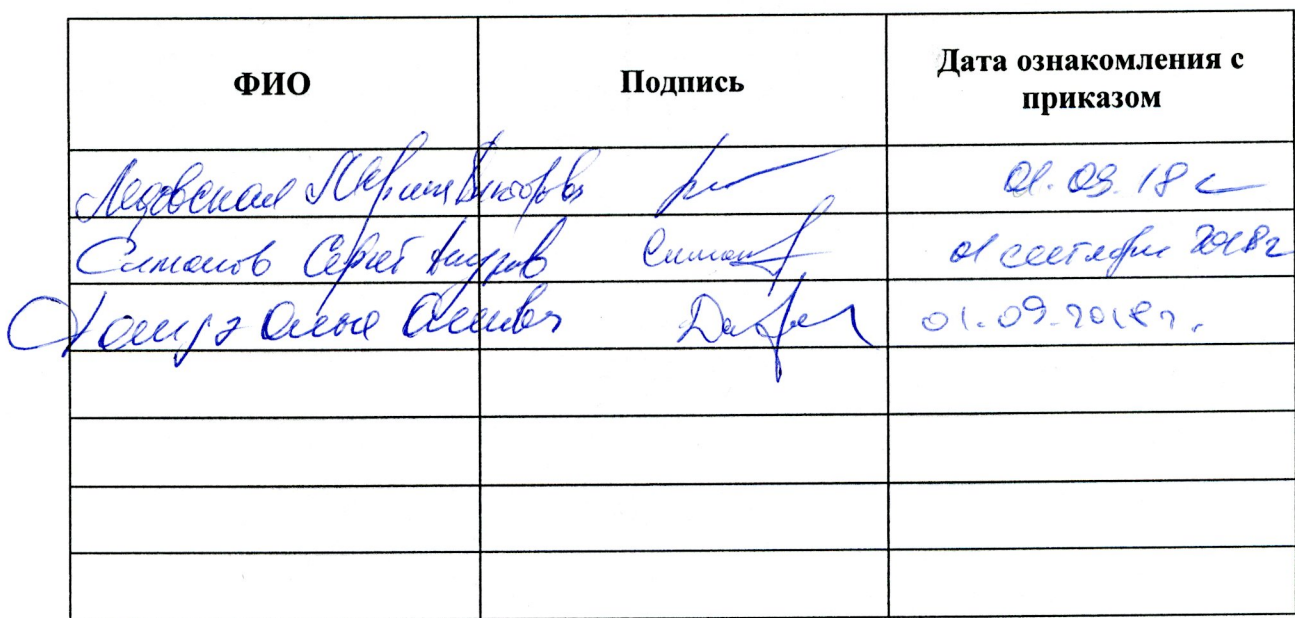 ФИО Подпись Дата ознакомления с
приказом
Ледовская Марина Викторовна 01.09.18 г
Симонов Сергей Симон 01 сентября 2018г
Ольга 01.09.2018г.